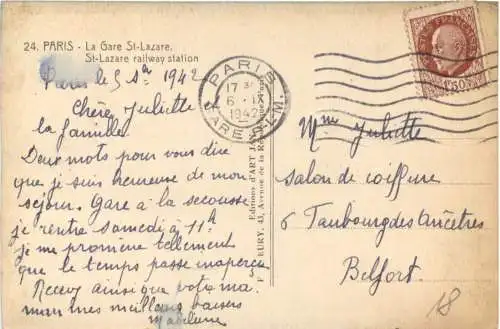 24. PARIS - La Gare St-Lazare.
St-Lazare railway station
Paris le 5 1942
Chère Juliette
la famille.
Deux mots pour vous dire
que je suis heureuse de mon
séjour. Gare à la secousse
je rentre samedi à 11h
je me promène tellement
que le temps passe inaperçu
Recevez ainsi que votre ma
man mes meilleurs baisers
Madeleine
PARIS
17
6 IX
1942
GARE P.L.M.
Editions d'ART
FLEURY, 43, Avenue de la
POSTES FRANÇAISES
1F50
Mme Juliette
salon de coiffure
6 Faubourg des Ancêtres
Belfort.
18